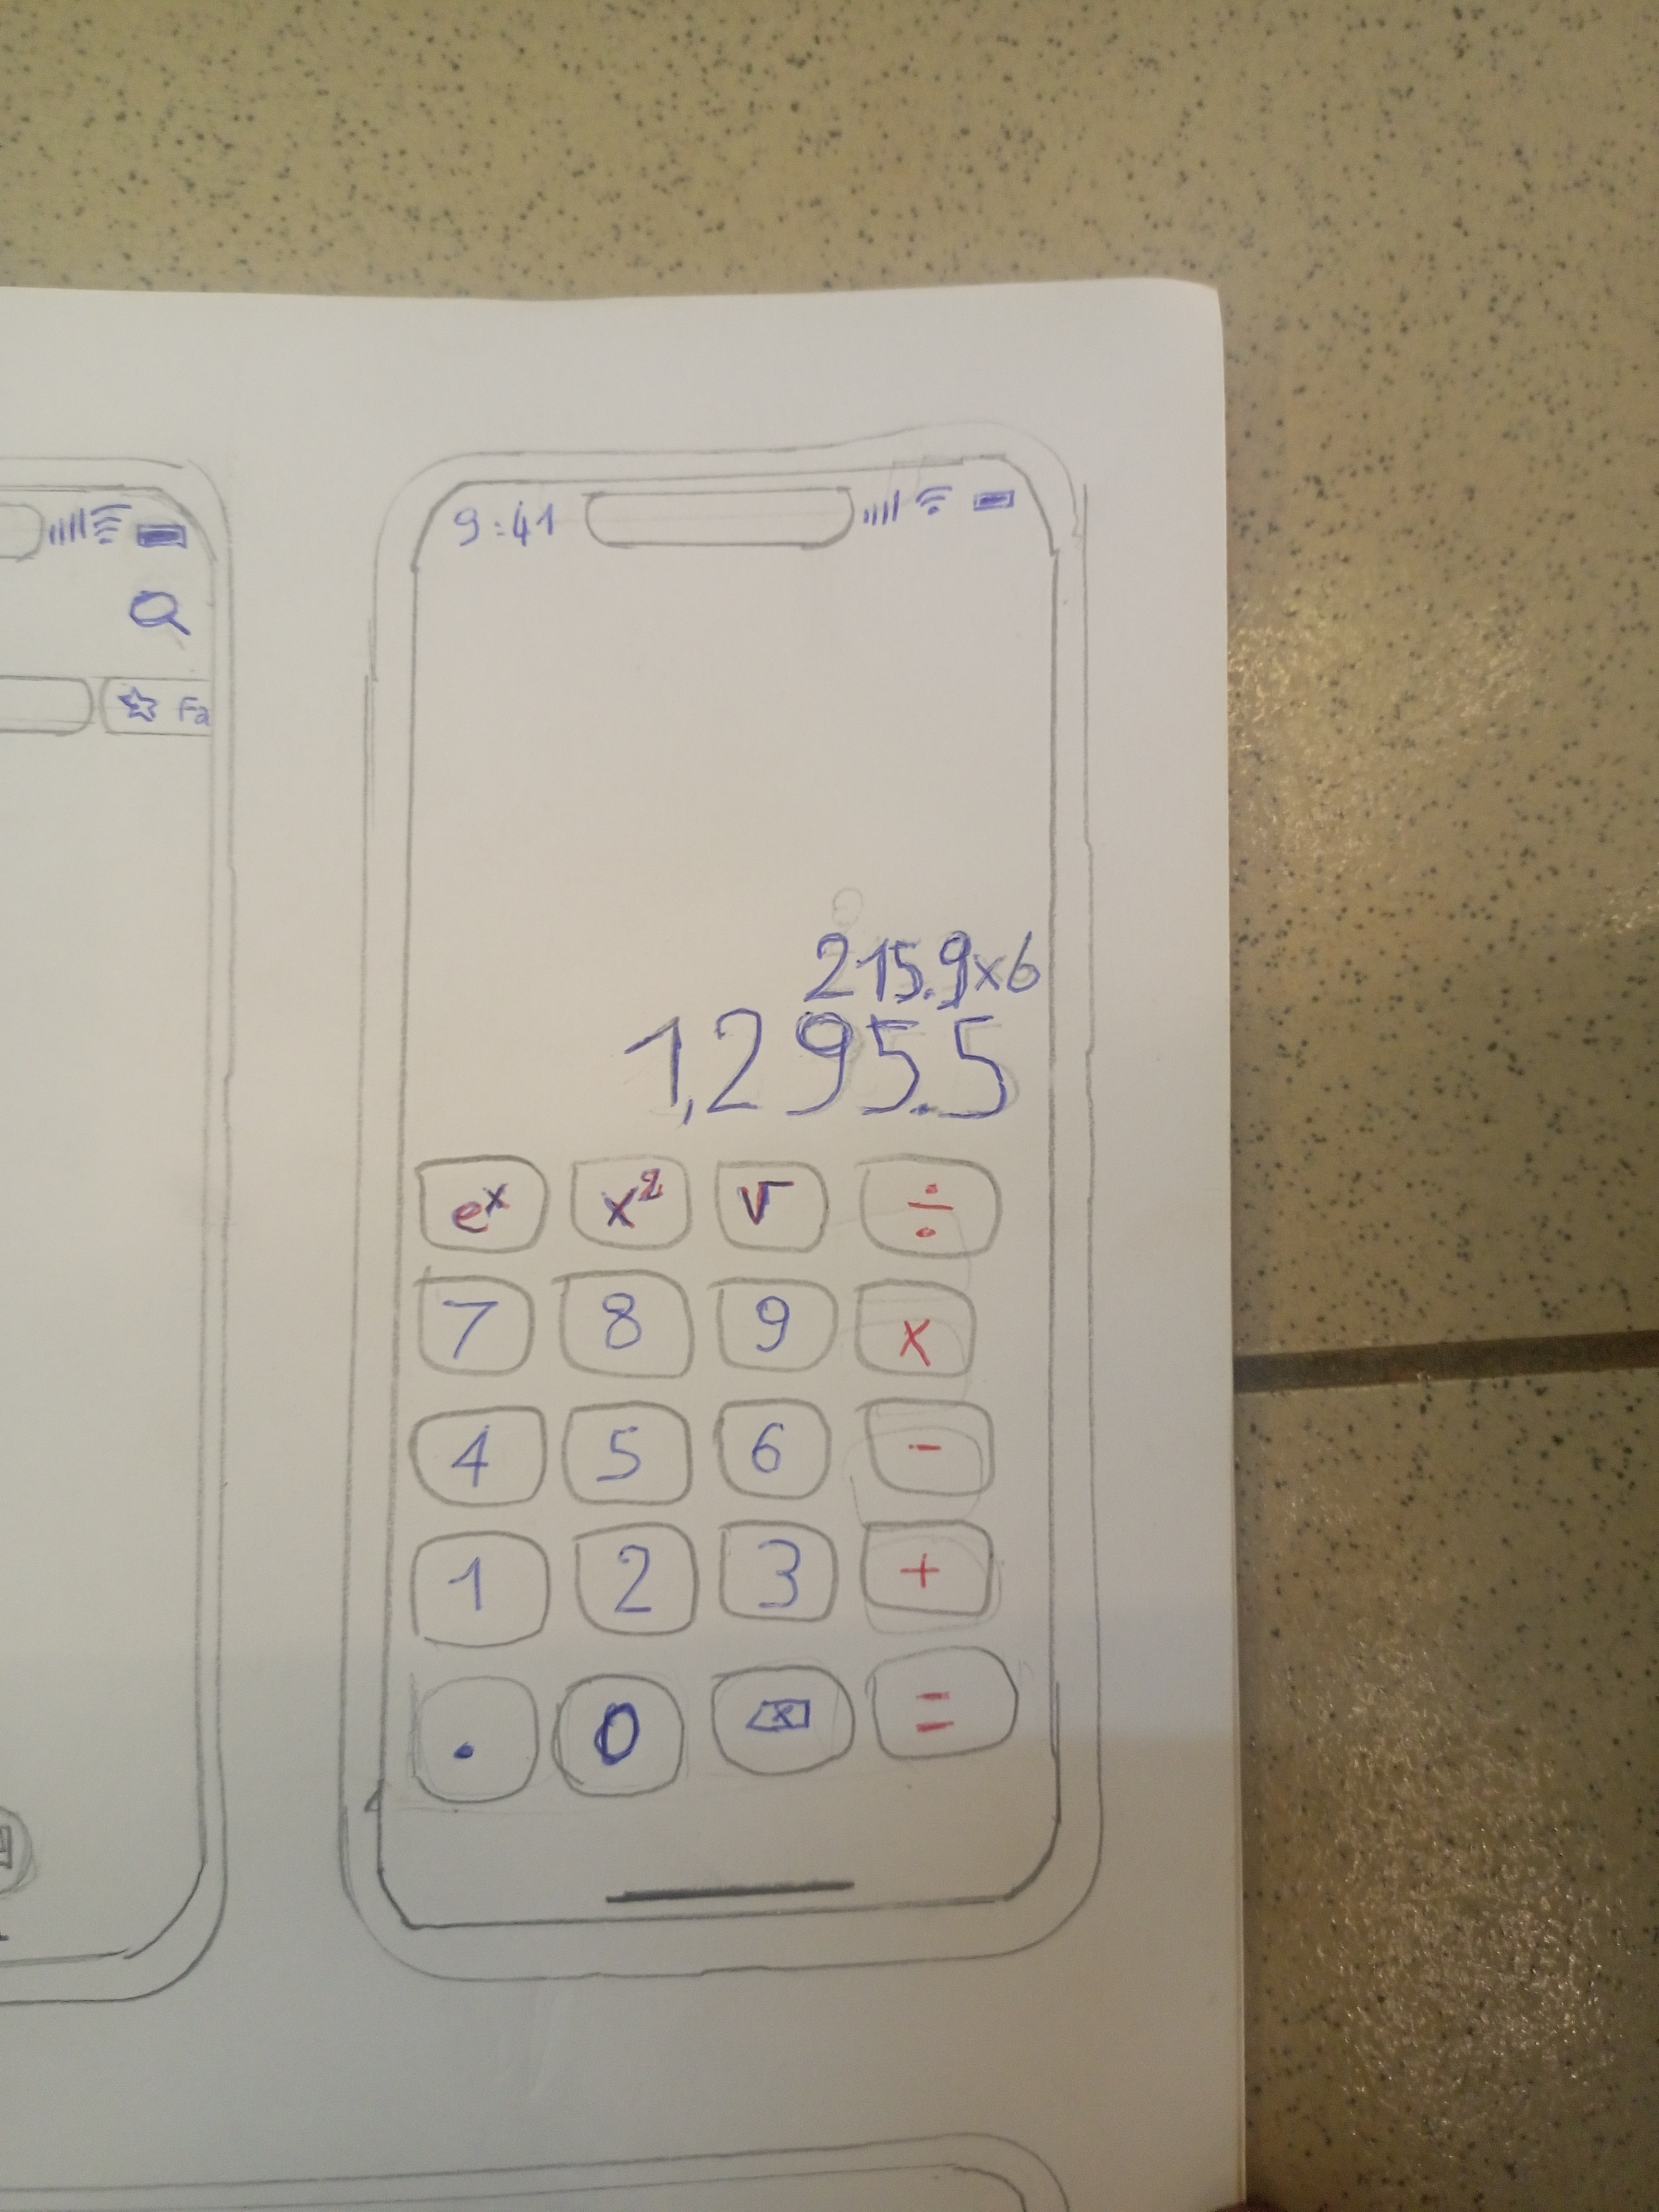 Fa
9:41
215.9x6
1,295.5
eˣ x² √ ÷
7 8 9 x
4 5 6 -
1 2 3 +
. 0 =